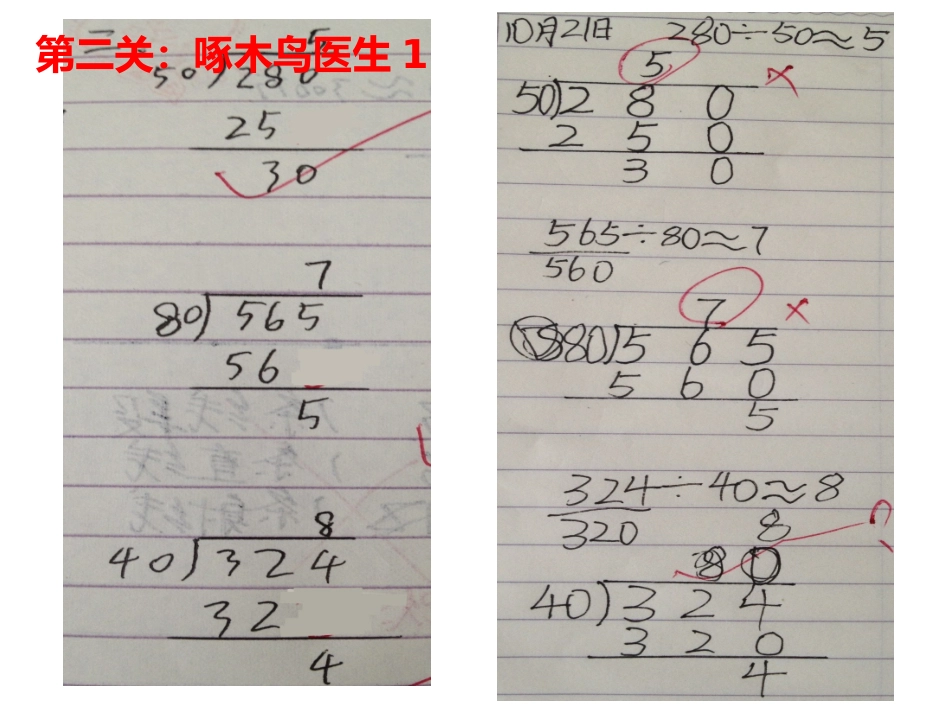 第二关：啄木鸟医生 1
5
50)280
25
30
7
80)565
56
5
8
40)324
32
4
10月21日 280÷50≈5
5
50)280
250
30
565÷80≈7
560
7
80)565
560
5
324÷40≈8
320
8
40)324
320
4